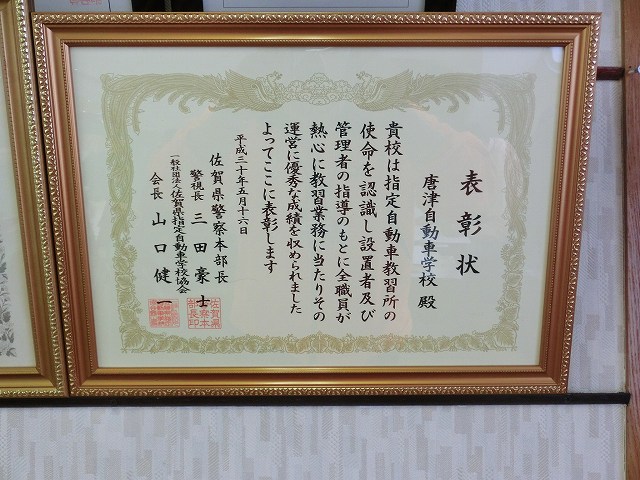 表彰状
唐津自動車学校 殿
貴校は指定自動車教習所の
使命を認識し設置者及び
管理者の指導のもとに全職員が
熱心に教習業務に当たりその
運営に優秀な成績を収められました
よってここに表彰します
平成三十年五月十六日
佐賀県警察本部長
警視長 三田豪士
一般社団法人佐賀県指定自動車学校協会
会長 山口健一
佐賀県
警察本
部長印